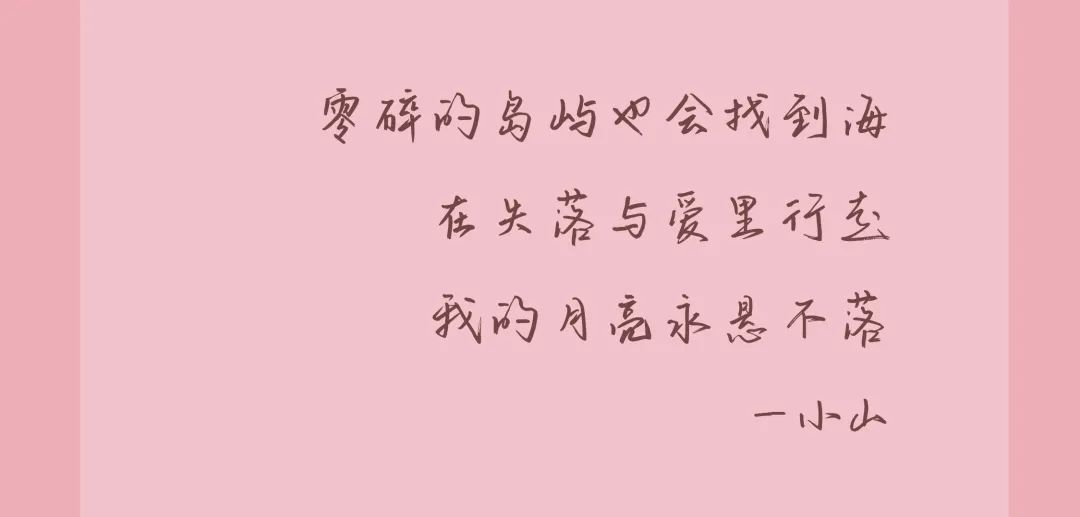 零碎的岛屿也会找到海
在失落与爱里行走
我的月亮永悬不落
一小山